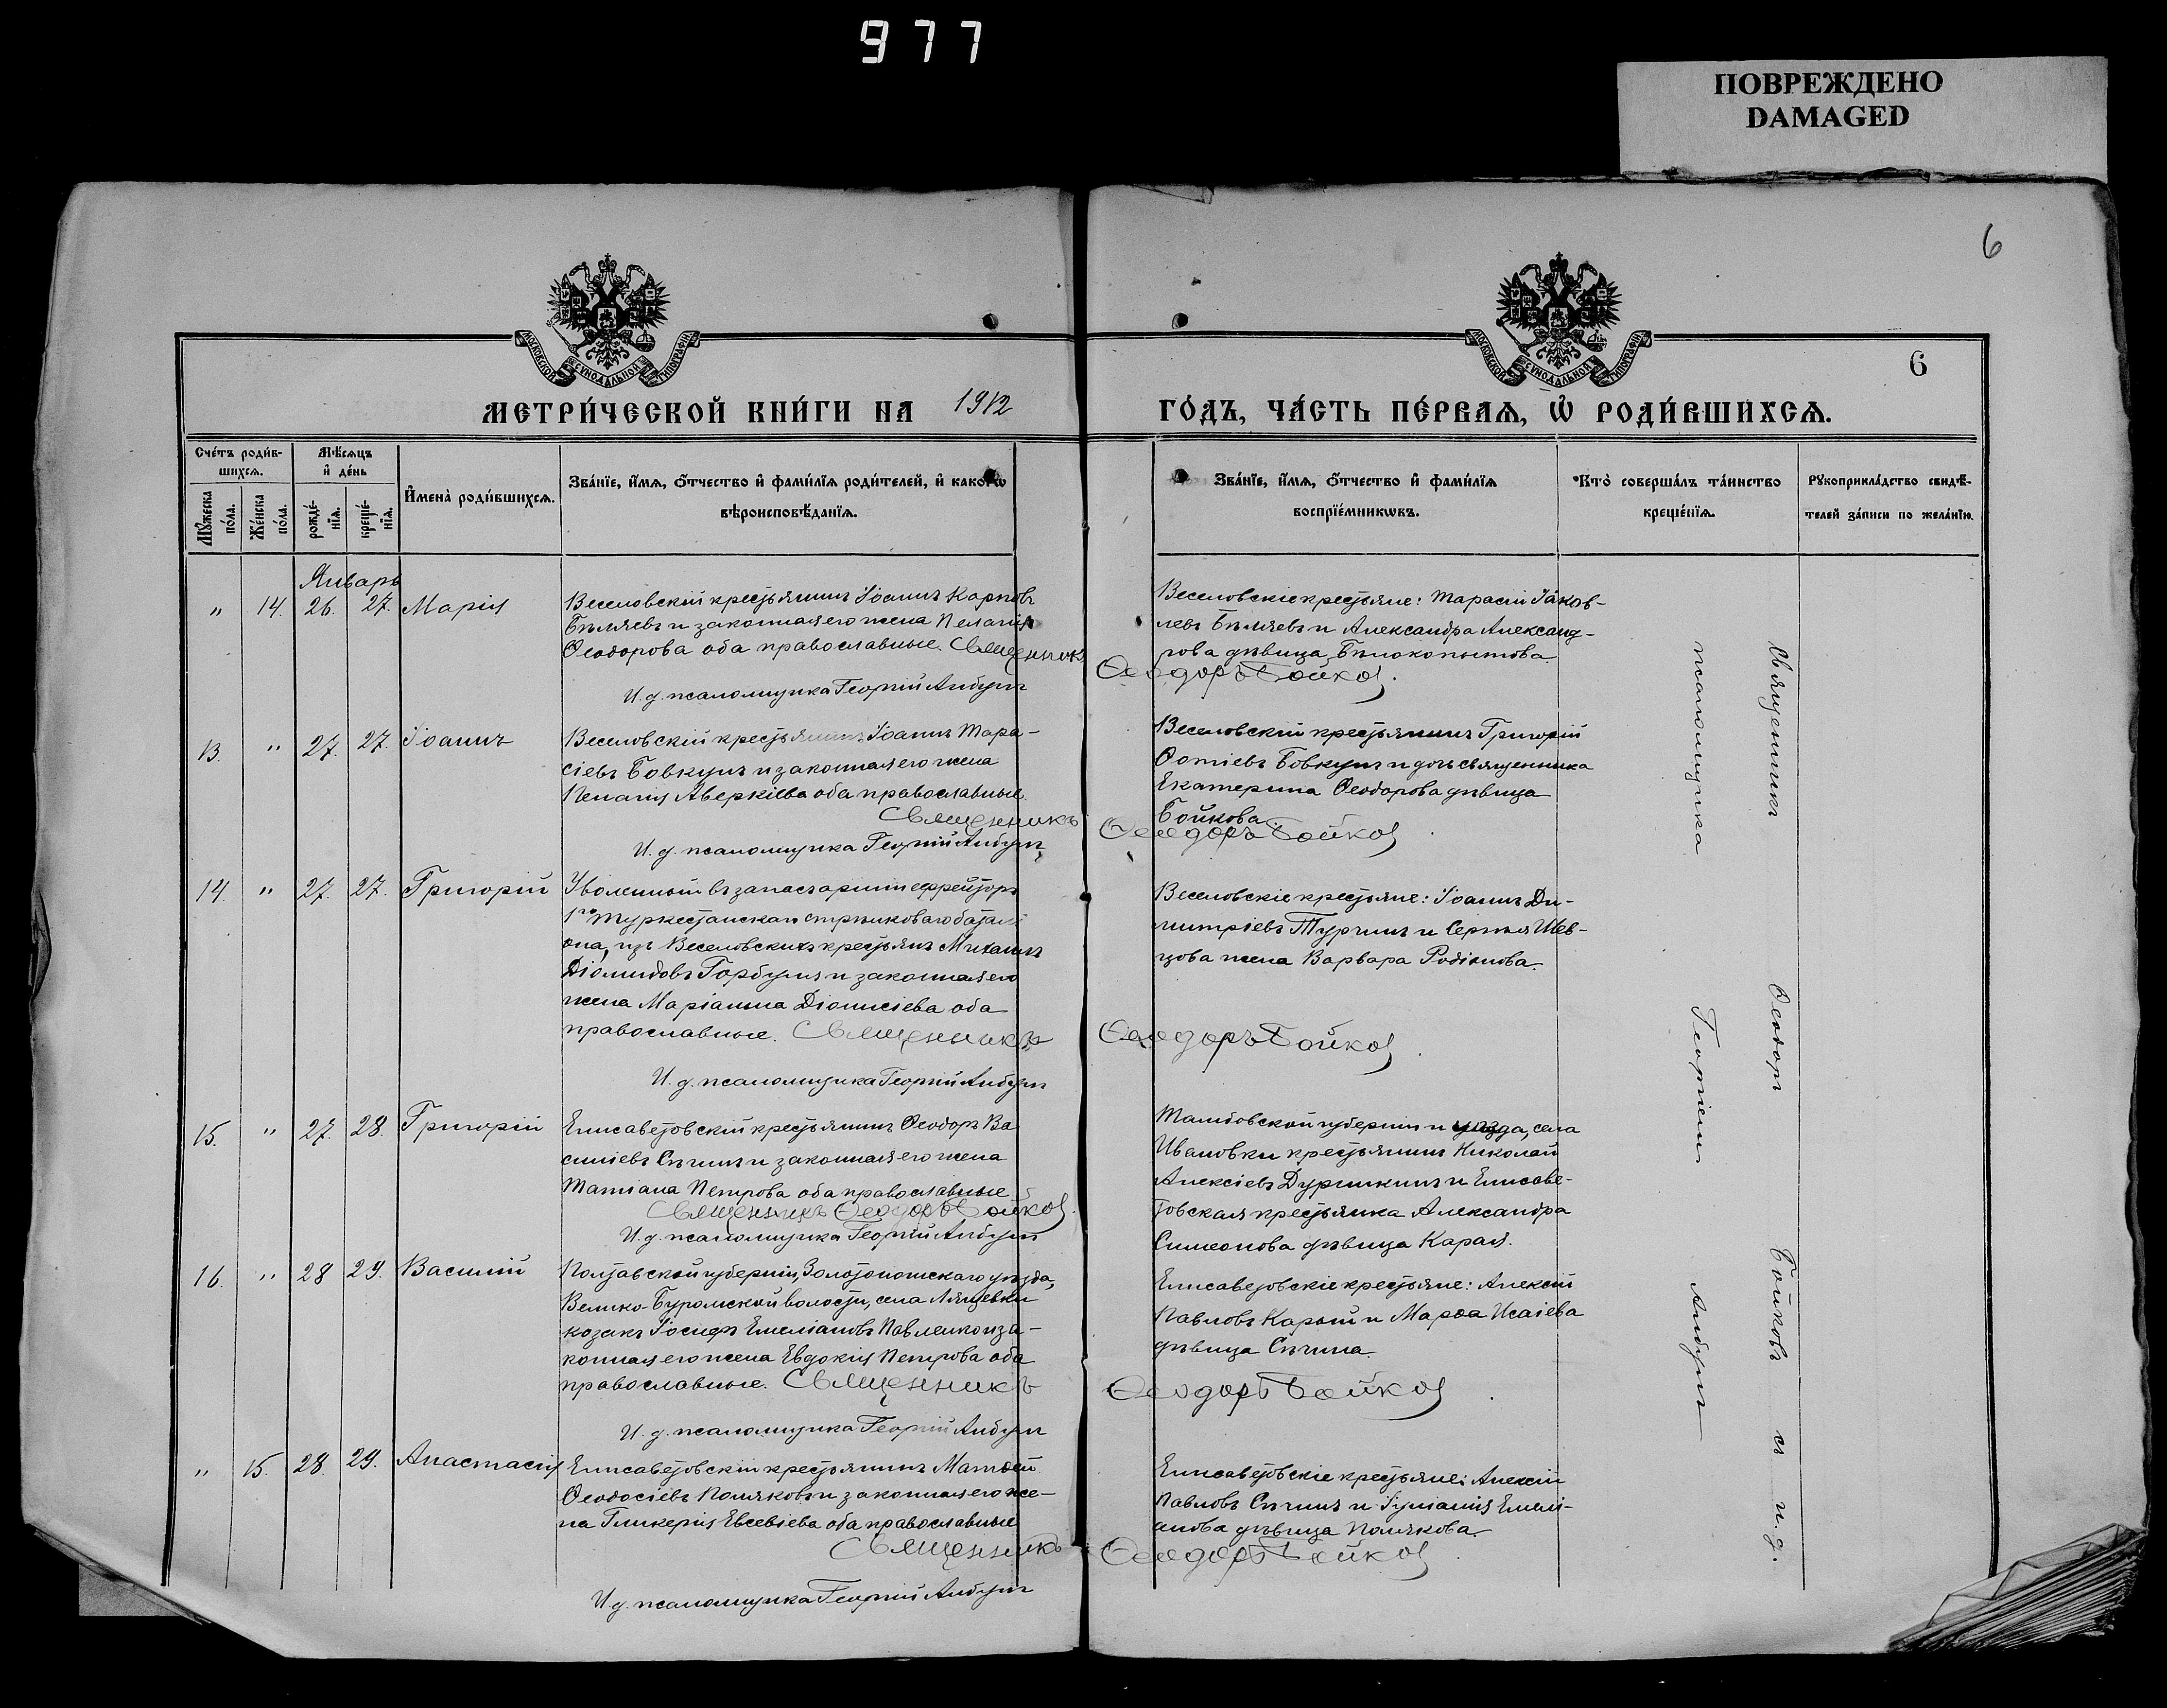 977
ПОВРЕЖДЕНО
DAMAGED
6
МОСКОВСКОЙ СѴНОДАЛЬНОЙ ТИПОГРАФІИ
МОСКОВСКОЙ СѴНОДАЛЬНОЙ ТИПОГРАФІИ
6
МЕТРИ́ЧЕСКОЙ КНИ́ГИ НА 1912
ГО́ДЪ, ЧА́СТЬ ПЕ́РВАЯ, Ѿ РОДИ́ВШИХСЯ.
Сче́тъ роди́в-
шихся.
Мѣ́сяцъ
и де́нь
Мꙋ́жеска
по́ла.
Же́нска
по́ла.
рожде́-
нїя.
креще́-
нїя.
Имена̀ роди́вшихся.
Зва́нїе, и́мя, о́тчество и фами́лїя роди́телей, и како́гѡ
вѣроисповѣ́данїя.
Зва́нїе, и́мя, о́тчество и фами́лїя
воспрїе́мникѡвъ.
Кто̀ соверша́лъ та́инство
креще́нїя.
Рꙋкоприкла́дство свидѣ́-
телей за́писи по жела́нїю.
Январь
" 14. 26. 27. Марія
Веселовскій крестьянинъ Іоаннъ Карповъ
Бѣляевъ и законная его жена Пелагія
Ѳеодорова оба православные. Священникъ
Ѳеодоръ Бойков
И. д. псаломщика Георгій Анбулъ
Веселовскіе крестьяне: Тарасій Іаков-
левъ Бѣляевъ и Александра Александ-
рова дѣвица Бѣлокопытова.
13. " 27. 27. Іоаннъ
Веселовскій крестьянинъ Іоаннъ Тара-
сіевъ Бовкунъ и законная его жена
Пелагія Аверкіева оба православные.
Священникъ Ѳеодоръ Бойков
И. д. псаломщика Георгій Анбулъ
Веселовскій крестьянинъ Григорій
Ѳотіевъ Бовкунъ и дочь священника
Екатерина Ѳеодорова дѣвица
Бойкова.
14. " 27. 27. Григорій
Уволенный въ запасъ арміи ефрейторъ
1го Туркестанскаго стрѣлковаго баталі
она, изъ Веселовскихъ крестьянъ Михаилъ
Діомидовъ Горбуля и законная его
жена Маріанна Діонисіева оба
православные. Священникъ Ѳеодоръ Бойков
И. д. псаломщика Георгій Анбулъ
Веселовскіе крестьяне: Іоаннъ Ди-
митріевъ Турчинъ и Сергѣя Шев-
цова жена Варвара Родіонова.
15. " 27. 28. Григорій
Елисаветовскій крестьянинъ Ѳеодоръ Ва
силіевъ Сѣчинъ и законная его жена
Татіана Петрова оба православные
Священникъ Ѳеодоръ Бойков
И. д. псаломщика Георгій Анбулъ
Тамбовской губерніи и уѣзда, села
Ивановки крестьянинъ Николай
Алексіевъ Дурникинъ и Елисаве-
товская крестьянка Александра
Симеонова дѣвица Карая.
16. " 28 29. Василій
Полтавской губерніи, Золотоношскаго уѣзда,
Велико-Буромской волости, села Лящевки
козакъ Іосифъ Емеліановъ Павленко и за-
конная его жена Евдокія Петрова оба
православные. Священникъ Ѳеодоръ Бойков
И. д. псаломщика Георгій Анбулъ
Елисаветовскіе крестьяне: Алексій
Павловъ Карый и Марѳа Исаіева
дѣвица Сѣчина.
" 15. 28. 29. Анастасія
Елисаветовскій крестьянинъ Матѳей
Ѳеодосіевъ Поляковъ и законная его же-
на Гликерія Евсевіева оба православные
Священникъ Ѳеодоръ Бойков
И. д. псаломщика Георгій Анбулъ
Елисаветовскіе крестьяне: Алексій
Павловъ Сѣчинъ и Іуліанія Емелі-
анова дѣвица Полякова.
Священникъ Ѳеодоръ Бойковъ съ и. д.
псаломщика Георгіемъ Анбулъ